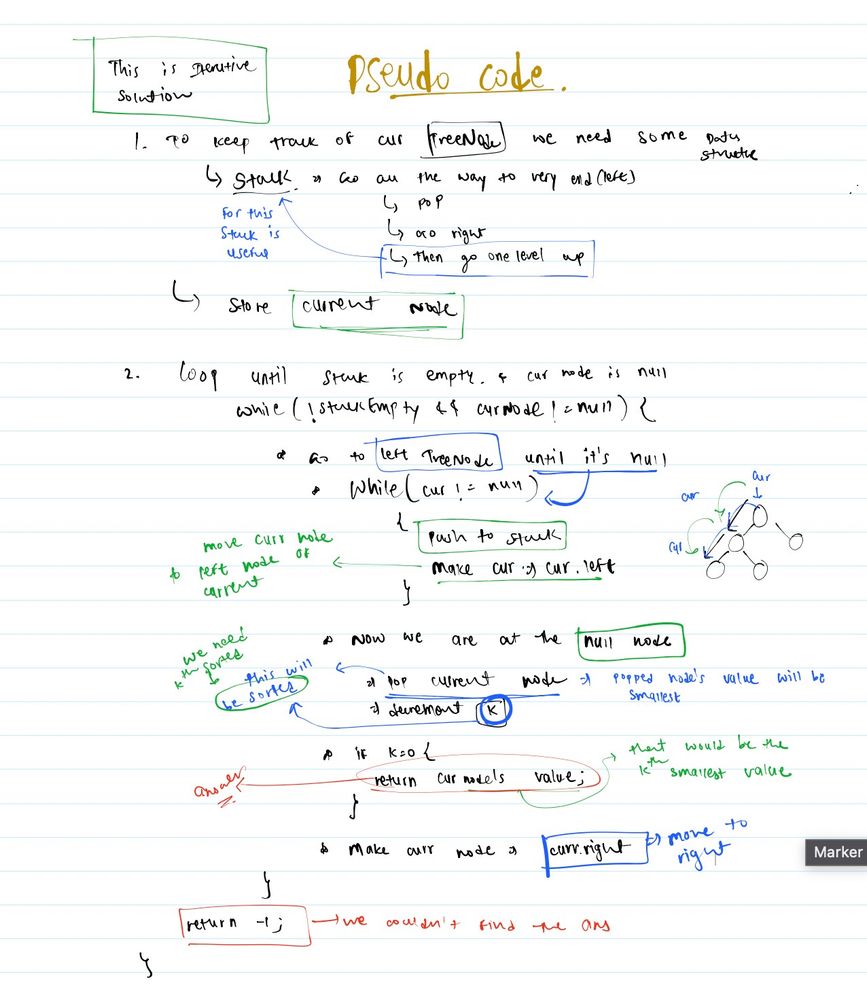 This is Iterative
solution
Pseudo code.
1. To keep track of cur TreeNode we need some Data
structure
↳ Stack ⇒ Go all the way to very end (left)
↳ POP
↳ Go right
↳ then go one level up
For this
Stack is
useful
↳ Store current Node
2. Loop until stack is empty. & cur node is null
while (!stackEmpty && curNode != null) {
* Go to left TreeNode until it's null
* While (cur != null)
{ push to stack
make cur ⇒ cur.left
}
move curr node
to left node of
current
cur
cur
cur
* Now we are at the null node
⇒ pop current node ⇒ popped node's value will be
smallest
⇒ decrement K
we need
kth sorted
this will
be sorted
* if k=0 {
return cur node's value;
}
answer
that would be the
kth smallest value
* Make curr node ⇒ curr.right ⇒ move to
right
}
return -1; → we couldn't find the ans
}
Marker